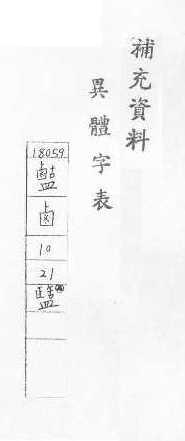 補充資料
異體字表
18059
鹵
10
21